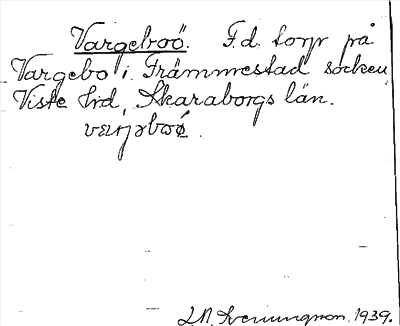 Vargeboö. F.d. torp på
Vargebo i Främmestad socken,
Viste hd, Skaraborgs län.
varjəboö.
1939.